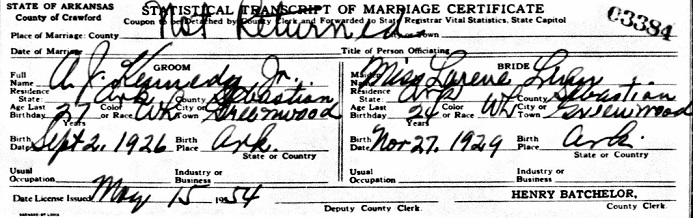 STATE OF ARKANSAS STATISTICAL TRANSCRIPT OF MARRIAGE CERTIFICATE
County of Crawford Coupon to be Detached by County Clerk and Forwarded to State Registrar Vital Statistics, State Capitol 03384
Place of Marriage: County Not Returned or Town
Date of Marriage Title of Person Officiating
GROOM BRIDE
Full Name A. J. Kennedy Jr. Maiden Name Miss Larene
Residence State: Ark County Sebastian Residence State: Ark County Sebastian
Age Last Birthday 27 Years Color or Race Wh City or Town Greenwood Age Last Birthday 24 Years Color or Race Wh City or Town Greenwood
Birth Date Sept 2, 1926 Birth Place Ark. State or Country Birth Date Nov 27, 1929 Birth Place Ark. State or Country
Usual Occupation Industry or Business Usual Occupation Industry or Business
Date License Issued May 15 1954 Deputy County Clerk. HENRY BATCHELOR, County Clerk.